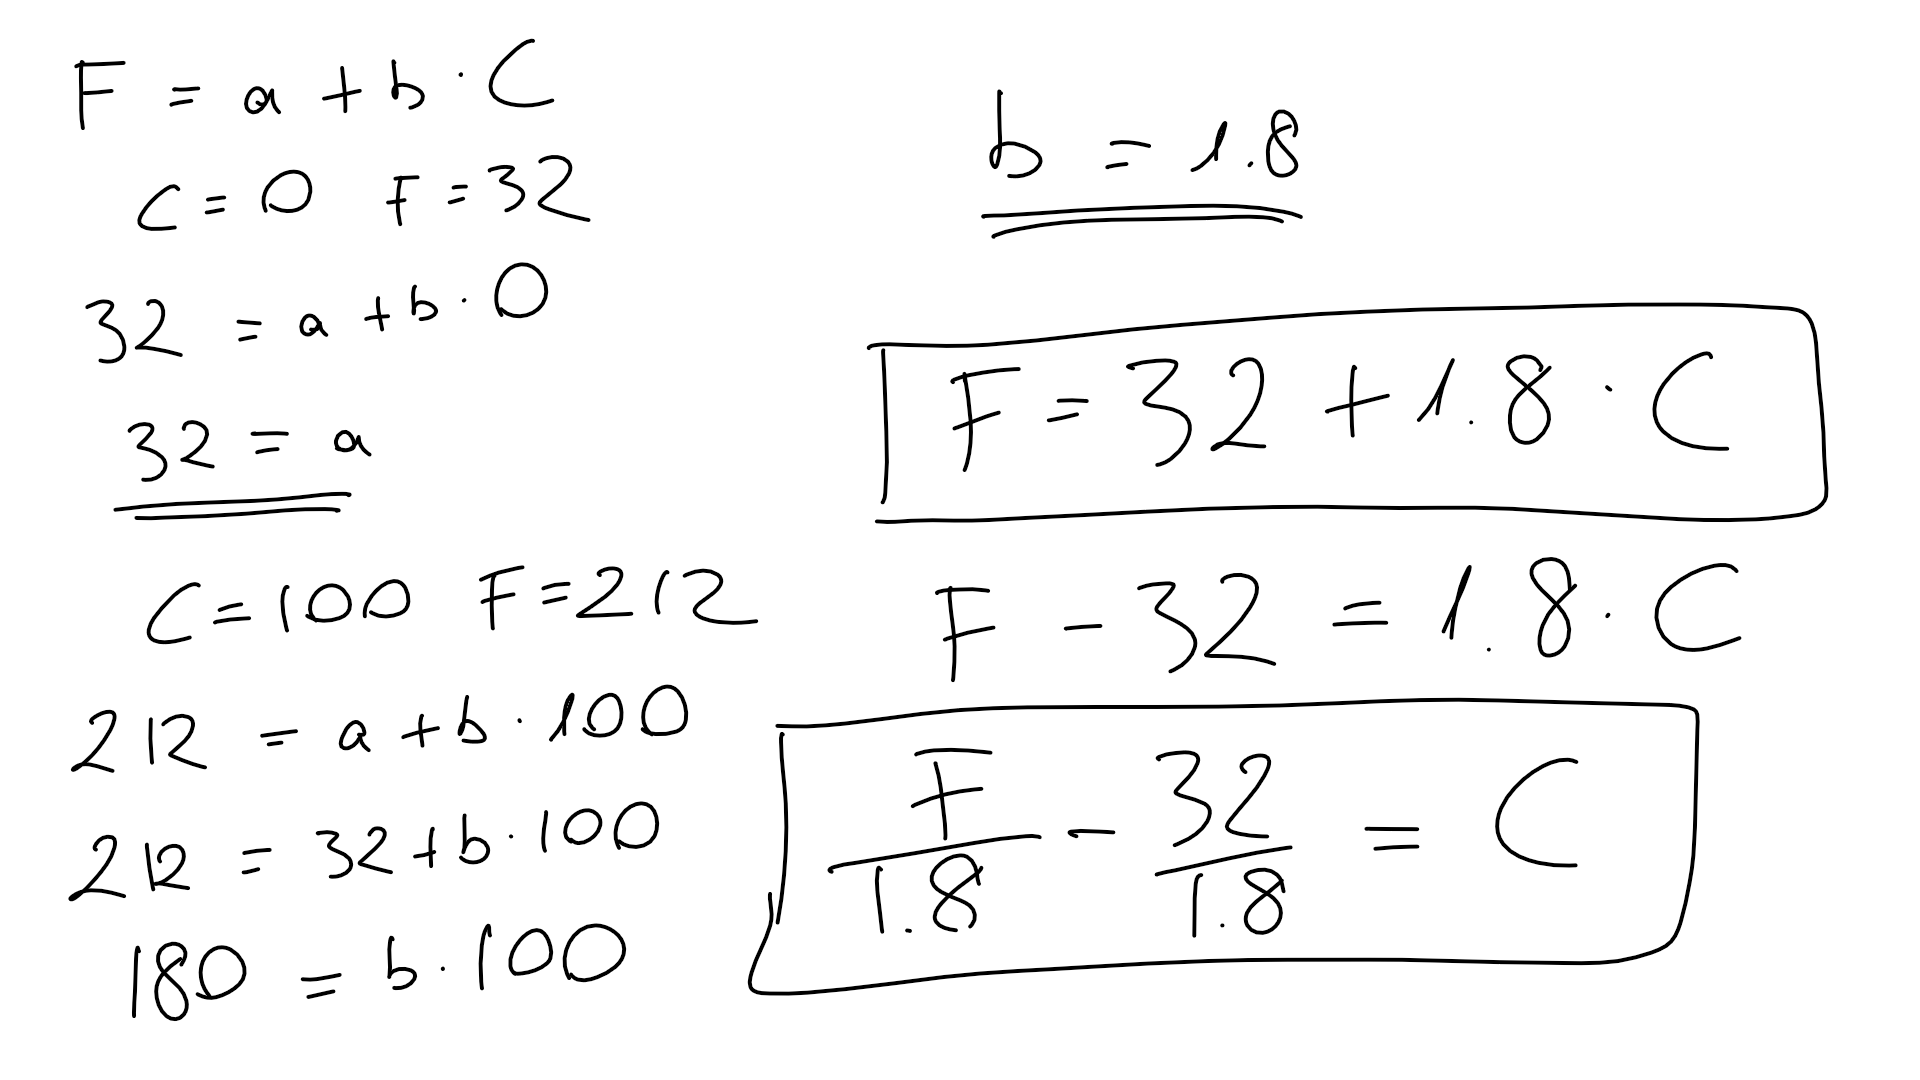 F = a + b · C
C = 0 F = 32
32 = a + b · 0
32 = a
C = 100 F = 212
212 = a + b · 100
212 = 32 + b · 100
180 = b · 100
b = 1.8
F = 32 + 1.8 · C
F - 32 = 1.8 · C
F/1.8 - 32/1.8 = C